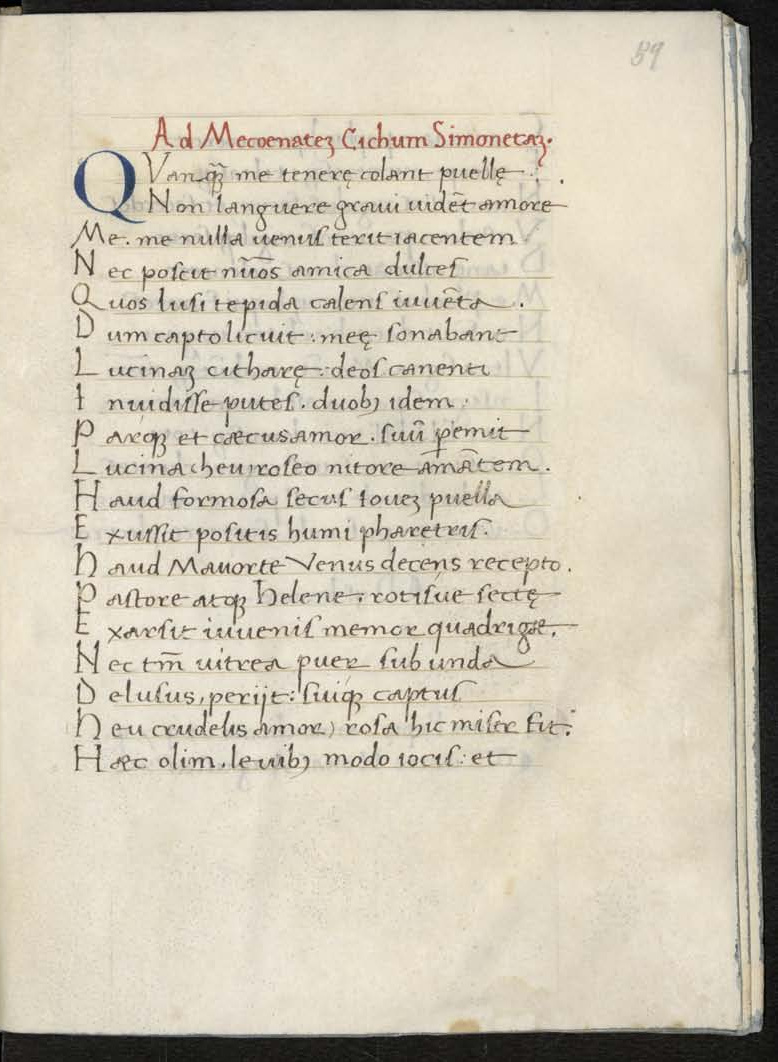 59
Ad Mecoenateȝ Cichum Simonetaȝ.
QVanq̃ȝ me tenerę colant puellę :.
Non languere graui uidẽt amore
Me. me nulla uenus terit iacentem
Nec poscit nũos amica dulces
Quos lusi tepida calens iuuẽta.
Dum capto licuit : meę sonabant
Lucinaȝ citharę : deos canenti
Inuidisse putes. duobȝ idem :
Parqȝ et cæcus amor. suũ p̱emit
Lucina (heu) roseo nitore amãtem.
Haud formosa secus Ioueȝ puella
Exussit positis humi pharetris.
Haud Mauorte Venus decens recepto.
Pastore atqȝ Helene, rotisue sectę
Exarsit iuuenis memor quadrigæ.
Nec tm̃ uitrea puer sub unda
Delusus, perijt : suiqȝ captus
Heu crudelis amor) rosa hic miser fit.
Hæc olim. leuibȝ modo iocis : et